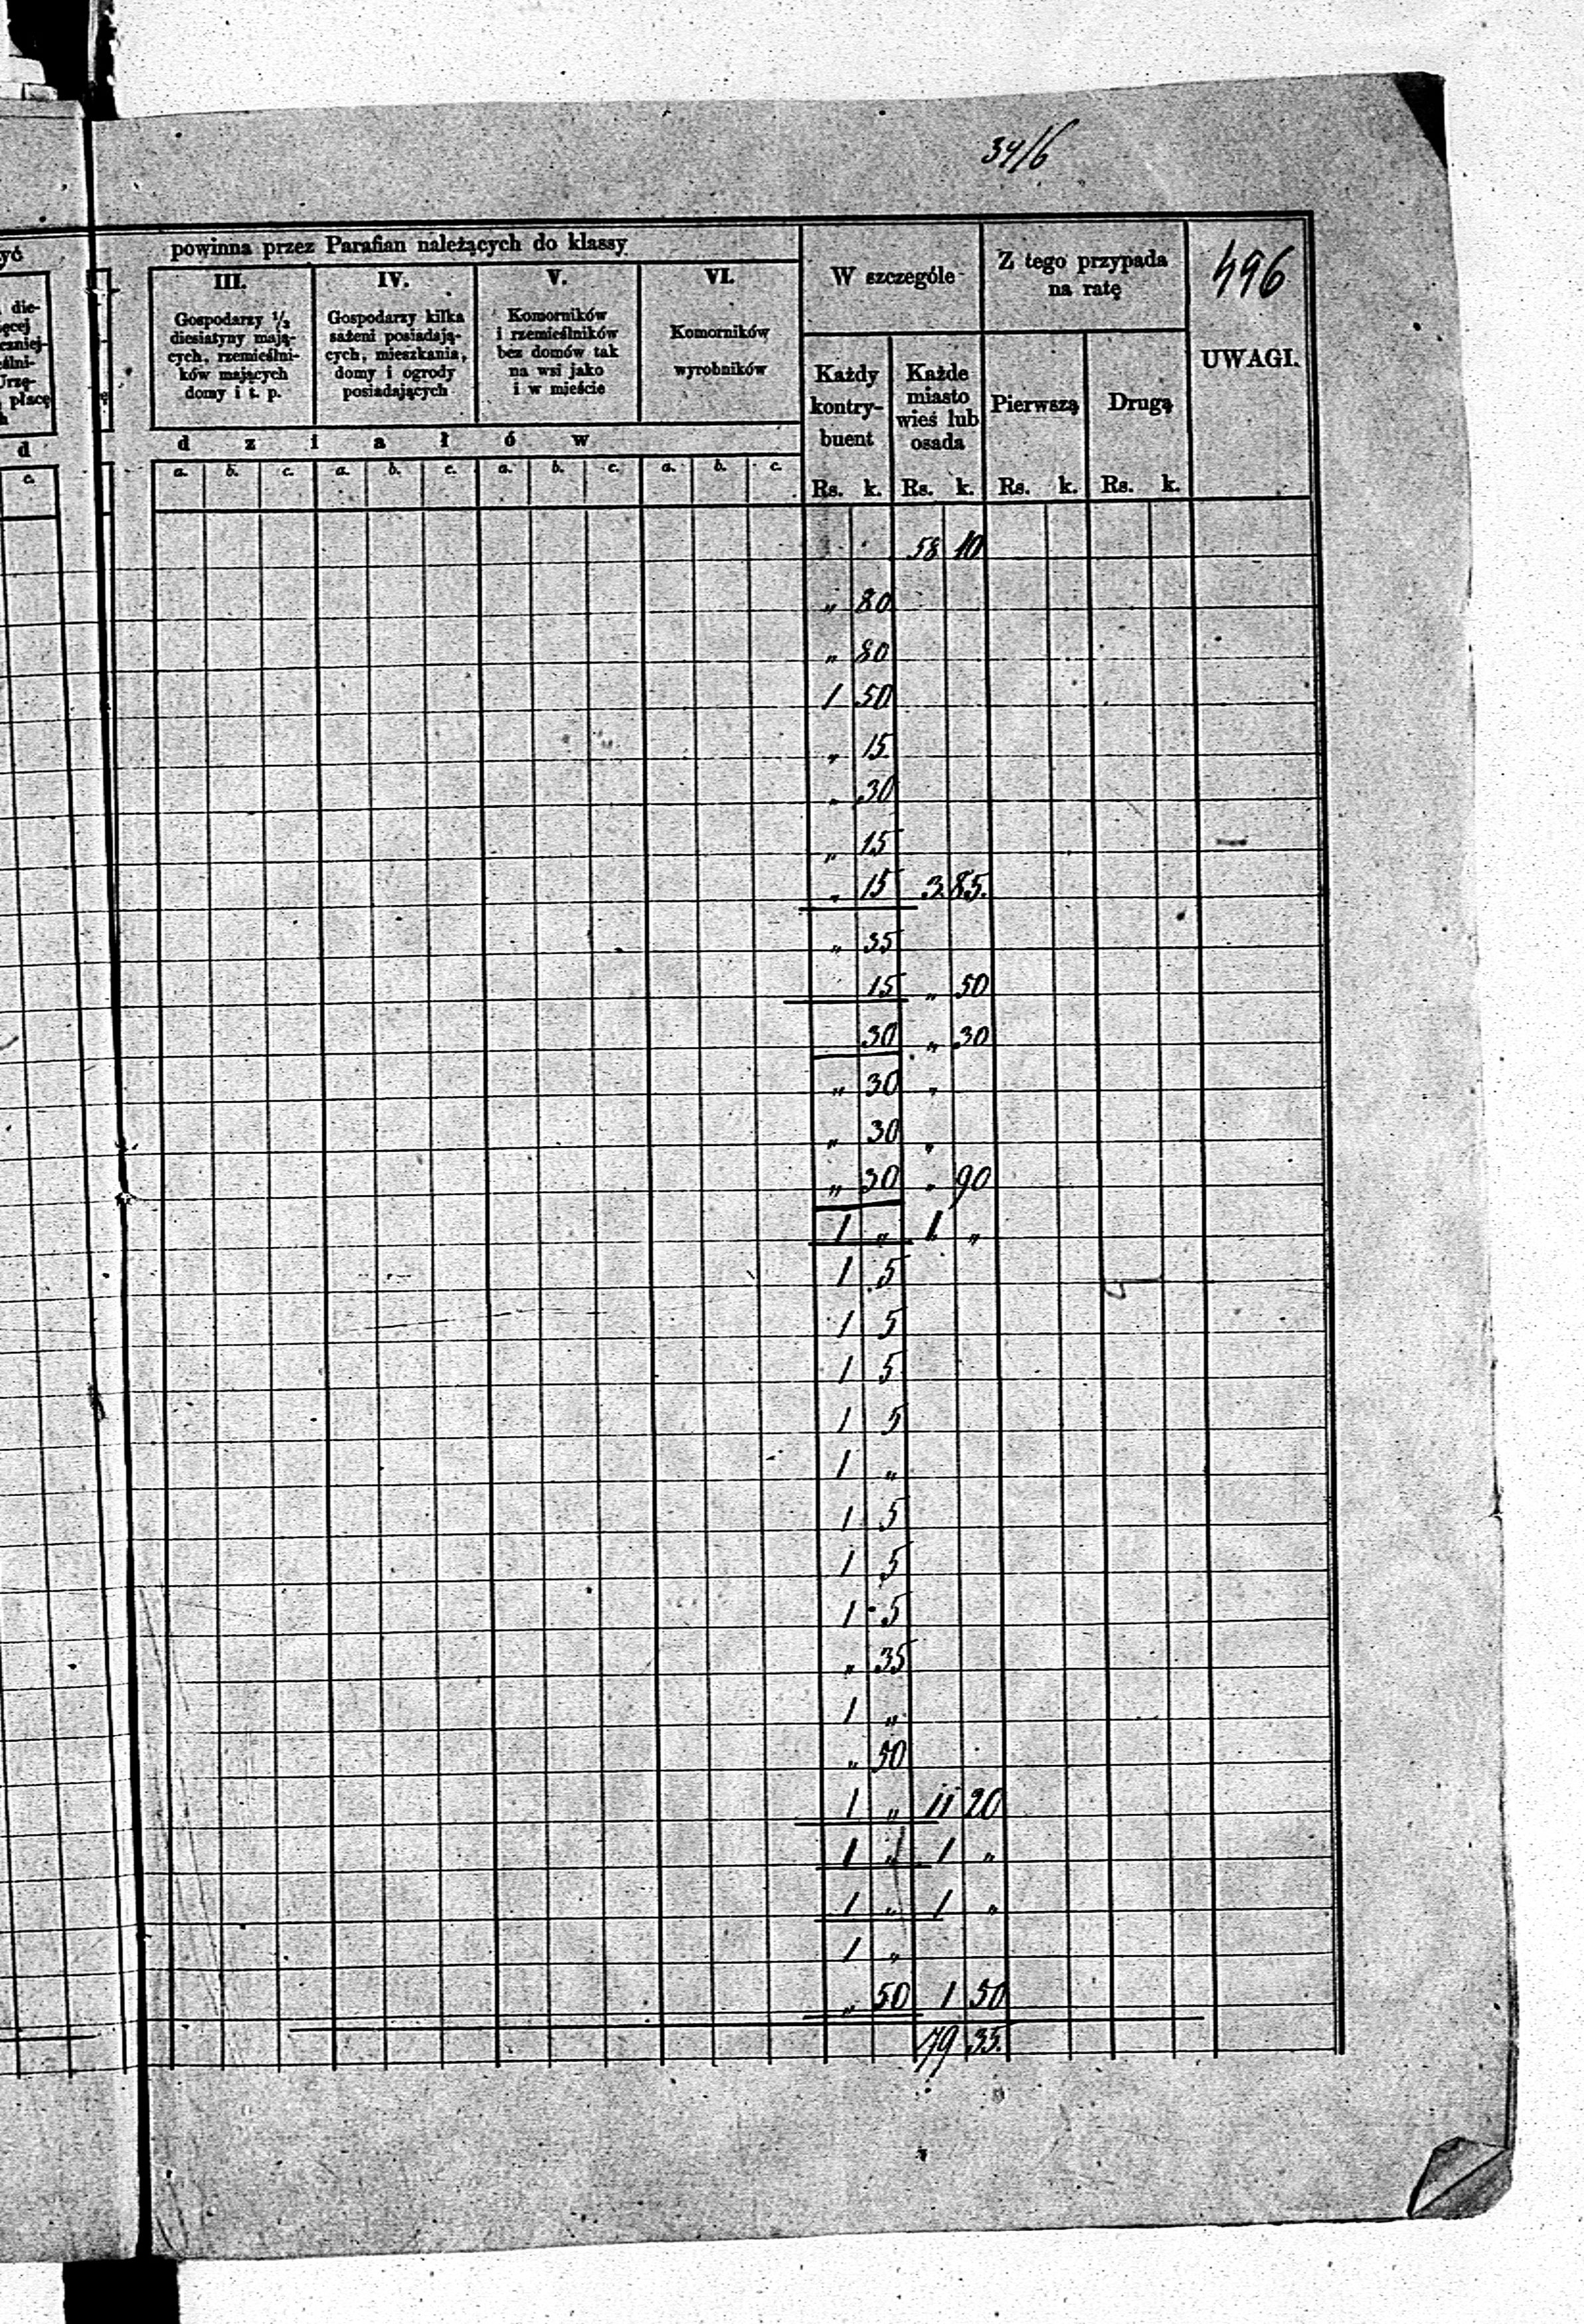 34/6
496
yć
powinna przez Parafian należących do klassy
W szczególe
Z tego przypada
na ratę
UWAGI.
III.
IV.
V.
VI.
Gospodarzy 1/2
diesiatyny mają-
cych, rzemieślni-
ków mających
domy i t. p.
Gospodarzy kilka
sażeni posiadają-
cych, mieszkania,
domy i ogrody
posiadających
Komorników
i rzemieślników
bez domów tak
na wsi jako
i w mieście
Komorników
wyrobników
Każdy
kontry-
buent
Każde
miasto
wieś lub
osada
Pierwszą
Drugą
płacę
d
d z i a ł ó w
c.
a. b. c. a. b. c. a. b. c. a. b. c.
Rs. k. Rs. k. Rs. k. Rs. k.
58 10
" 80
" 80
1 50
" 15
" 30
" 15
" 15 3 85.
" 35
15 " 50
30 " 30
" 30 "
" 30 "
" 30 " 90
1 " 1 "
1 5
1 5
1 5
1 5
1 "
1 5
1 5
1 5
" 35
1 "
" 50
1 " 11 20
1 " 1 "
1 " 1 "
1 "
" 50 1 50
79 35.